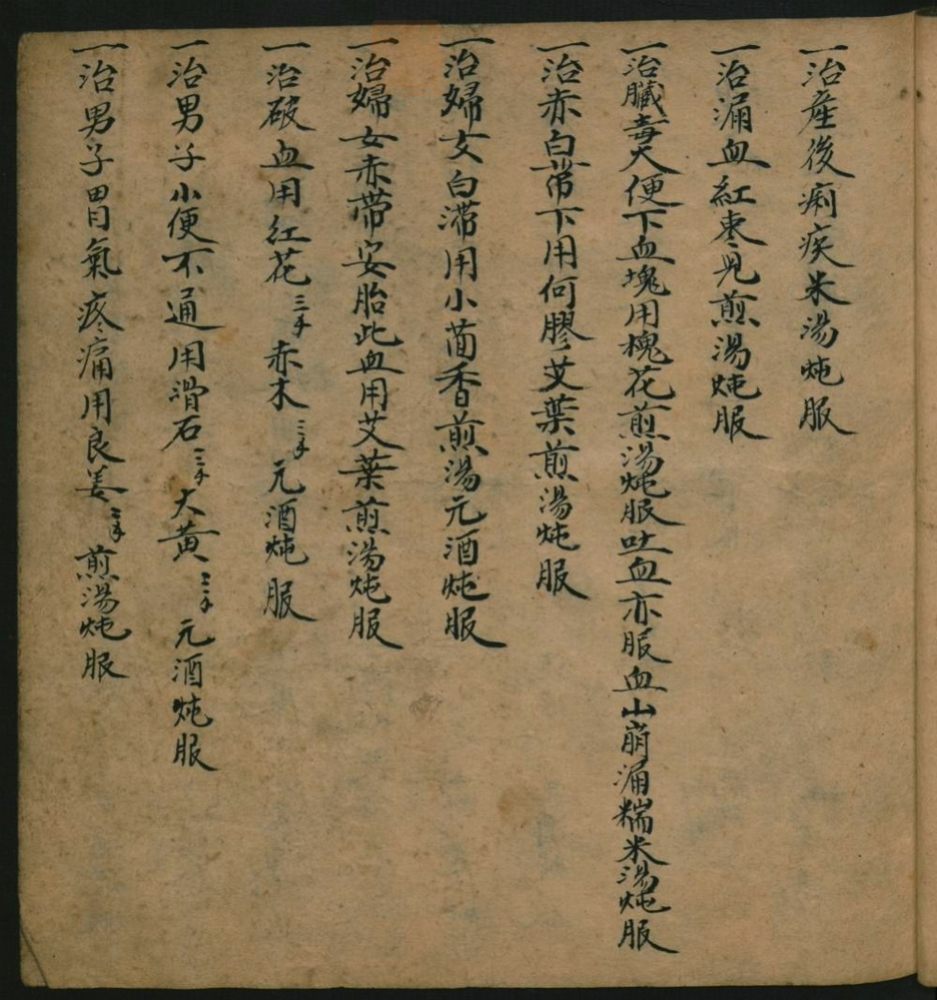 一治産後痢疾米湯炖服
一治漏血紅棗見煎湯炖服
一治臓毒大便下血塊用槐花煎湯炖服吐血亦服血山崩漏糯米湯炖服
一治赤白帶下用何膠艾葉煎湯炖服
一治婦女白滯用小茴香煎湯元酒炖服
一治婦女赤帶安胎此血用艾葉煎湯炖服
一治破血用紅花三手赤木三手元酒炖服
一治男子小便不通用滑石三手大黄三手元酒炖服
一治男子胃氣疼痛用良姜手煎湯炖服